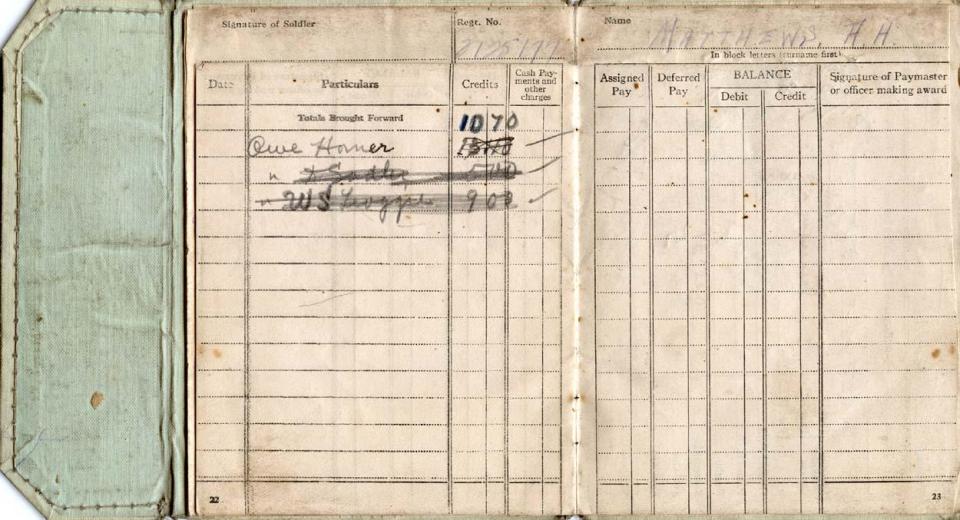 Signature of Soldier
Regt. No.
Name
MATTHEWS, H.H.
In block letters (surname first)
Date
Particulars
Credits
Cash Pay-
ments and
other
charges
Assigned
Pay
Deferred
Pay
BALANCE
Debit
Credit
Signature of Paymaster
or officer making award
Totals Brought Forward
10 70
Owe Homer
" Sadler
" WS
9 00
22
23